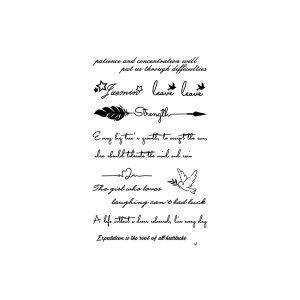 patience and concentration will
put us through difficulties
Jasmin leave leave
Strength
Every big tree's growth, to accept the sun,
also should tolerate the wind and rain
The girl who loves
laughing can't bad luck
A life without a dream released, live every day
Expectation is the root of all heartache